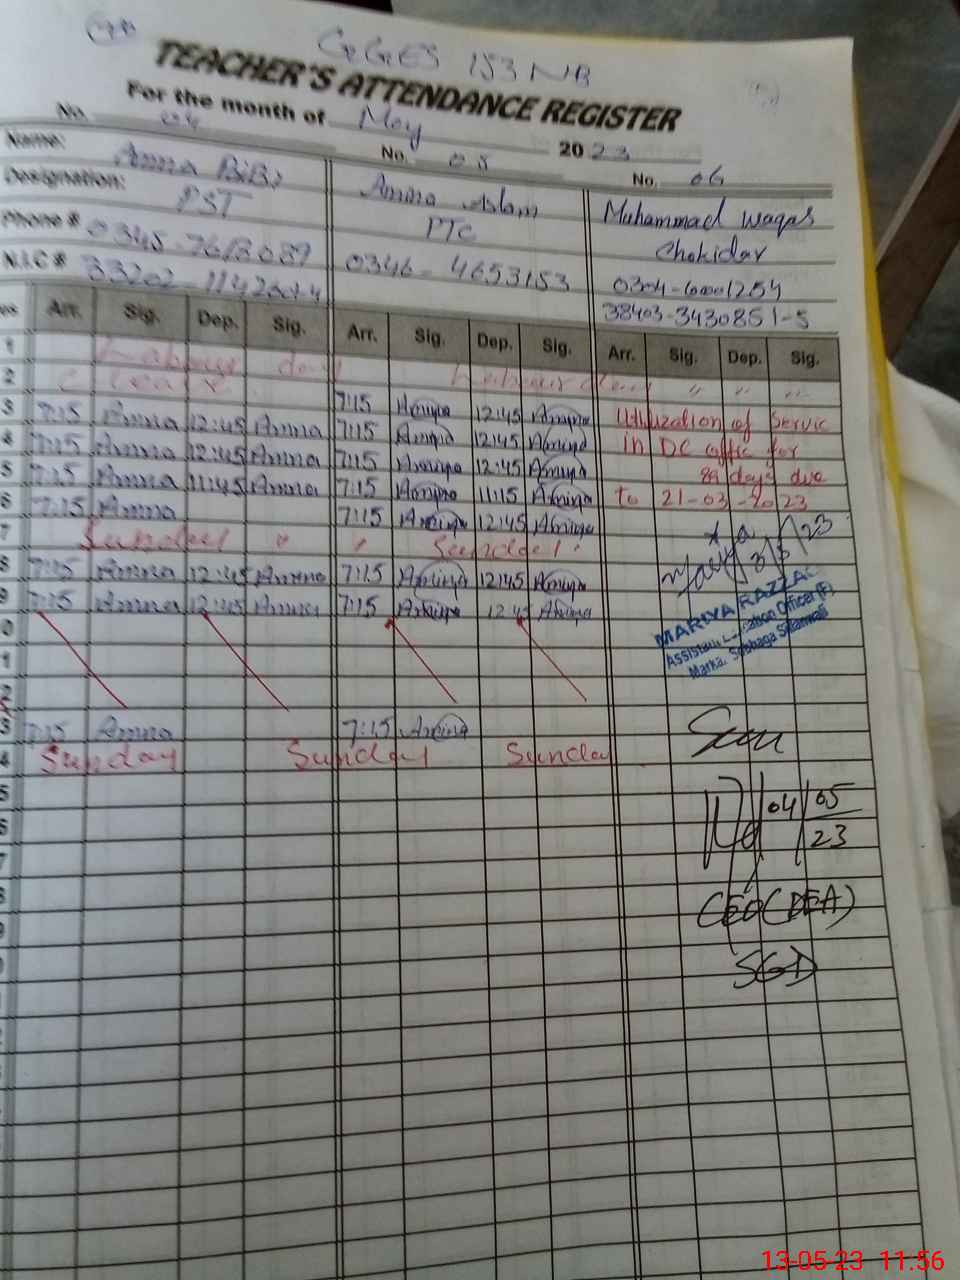 GGES 153 NB
TEACHER'S ATTENDANCE REGISTER
For the month of May 2023
No. 04 No. 05 No. 06
Name: Amna BiBi Amna Aslam Muhammad Waqas
Designation: PST PTC Chokidar
Phone # 0345-7613089 0346-4653153 0304-6001254
N.I.C # 33202-1142 38403-3430851-5
Arr. Sig. Dep. Sig. Arr. Sig. Dep. Sig. Arr. Sig. Dep. Sig.
1 Labour day Labour day " " "
2 C leave 7:15 Amna 12:45 Amna
3 7:15 Amna 12:45 Amna 7:15 Amna 12:45 Amna Utilization of Servic
4 7:15 Amna 12:45 Amna 7:15 Amna 12:45 Amna in DC offic for
5 7:15 Amna 11:45 Amna 7:15 Amna 11:15 Amna 89 days due
6 7:15 Amna 7:15 Amna 12:45 Amna to 21-03-2023
7 Sunday " " Sunday "
8 7:15 Amna 12:45 Amna 7:15 Amna 12:45 Amna
9 7:15 Amna 12:45 Amna 7:15 Amna 12:45 Amna
3/5/23
MARIYA RAZZAQ
Assistant Education Officer (F)
Marka. Sobhaga Sillanwali
0
1
2
3 7:15 Amna 7:15 Amna
Seen
4 Sunday Sunday Sunday
5 04/05
6 23
7
8 CEO (DEA)
9
SGD
13-05-23 11:56